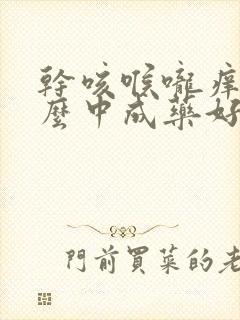 幹咳喉嚨痒
麼中成藥好
門前買菜的老